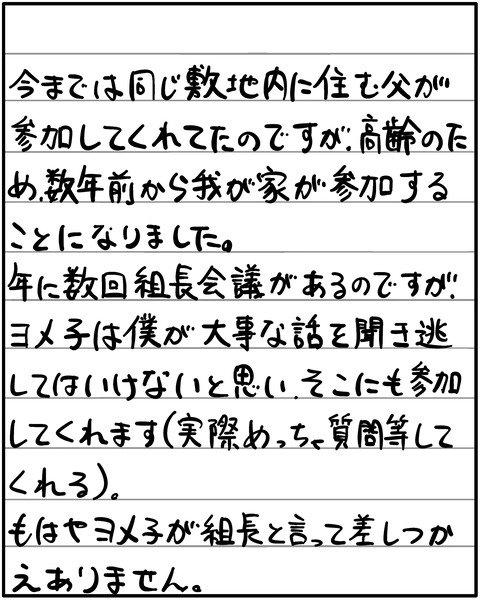 今までは同じ敷地内に住む父が
参加してくれてたのですが、高齢のた
め、数年前から我が家が参加する
ことになりました。
年に数回組長会議があるのですが、
ヨメ子は僕が大事な話を聞き逃
してはいけないと思い、そこにも参加
してくれます(実際めっちゃ質問等して
くれる)。
もはやヨメ子が組長と言って差しつか
えありません。